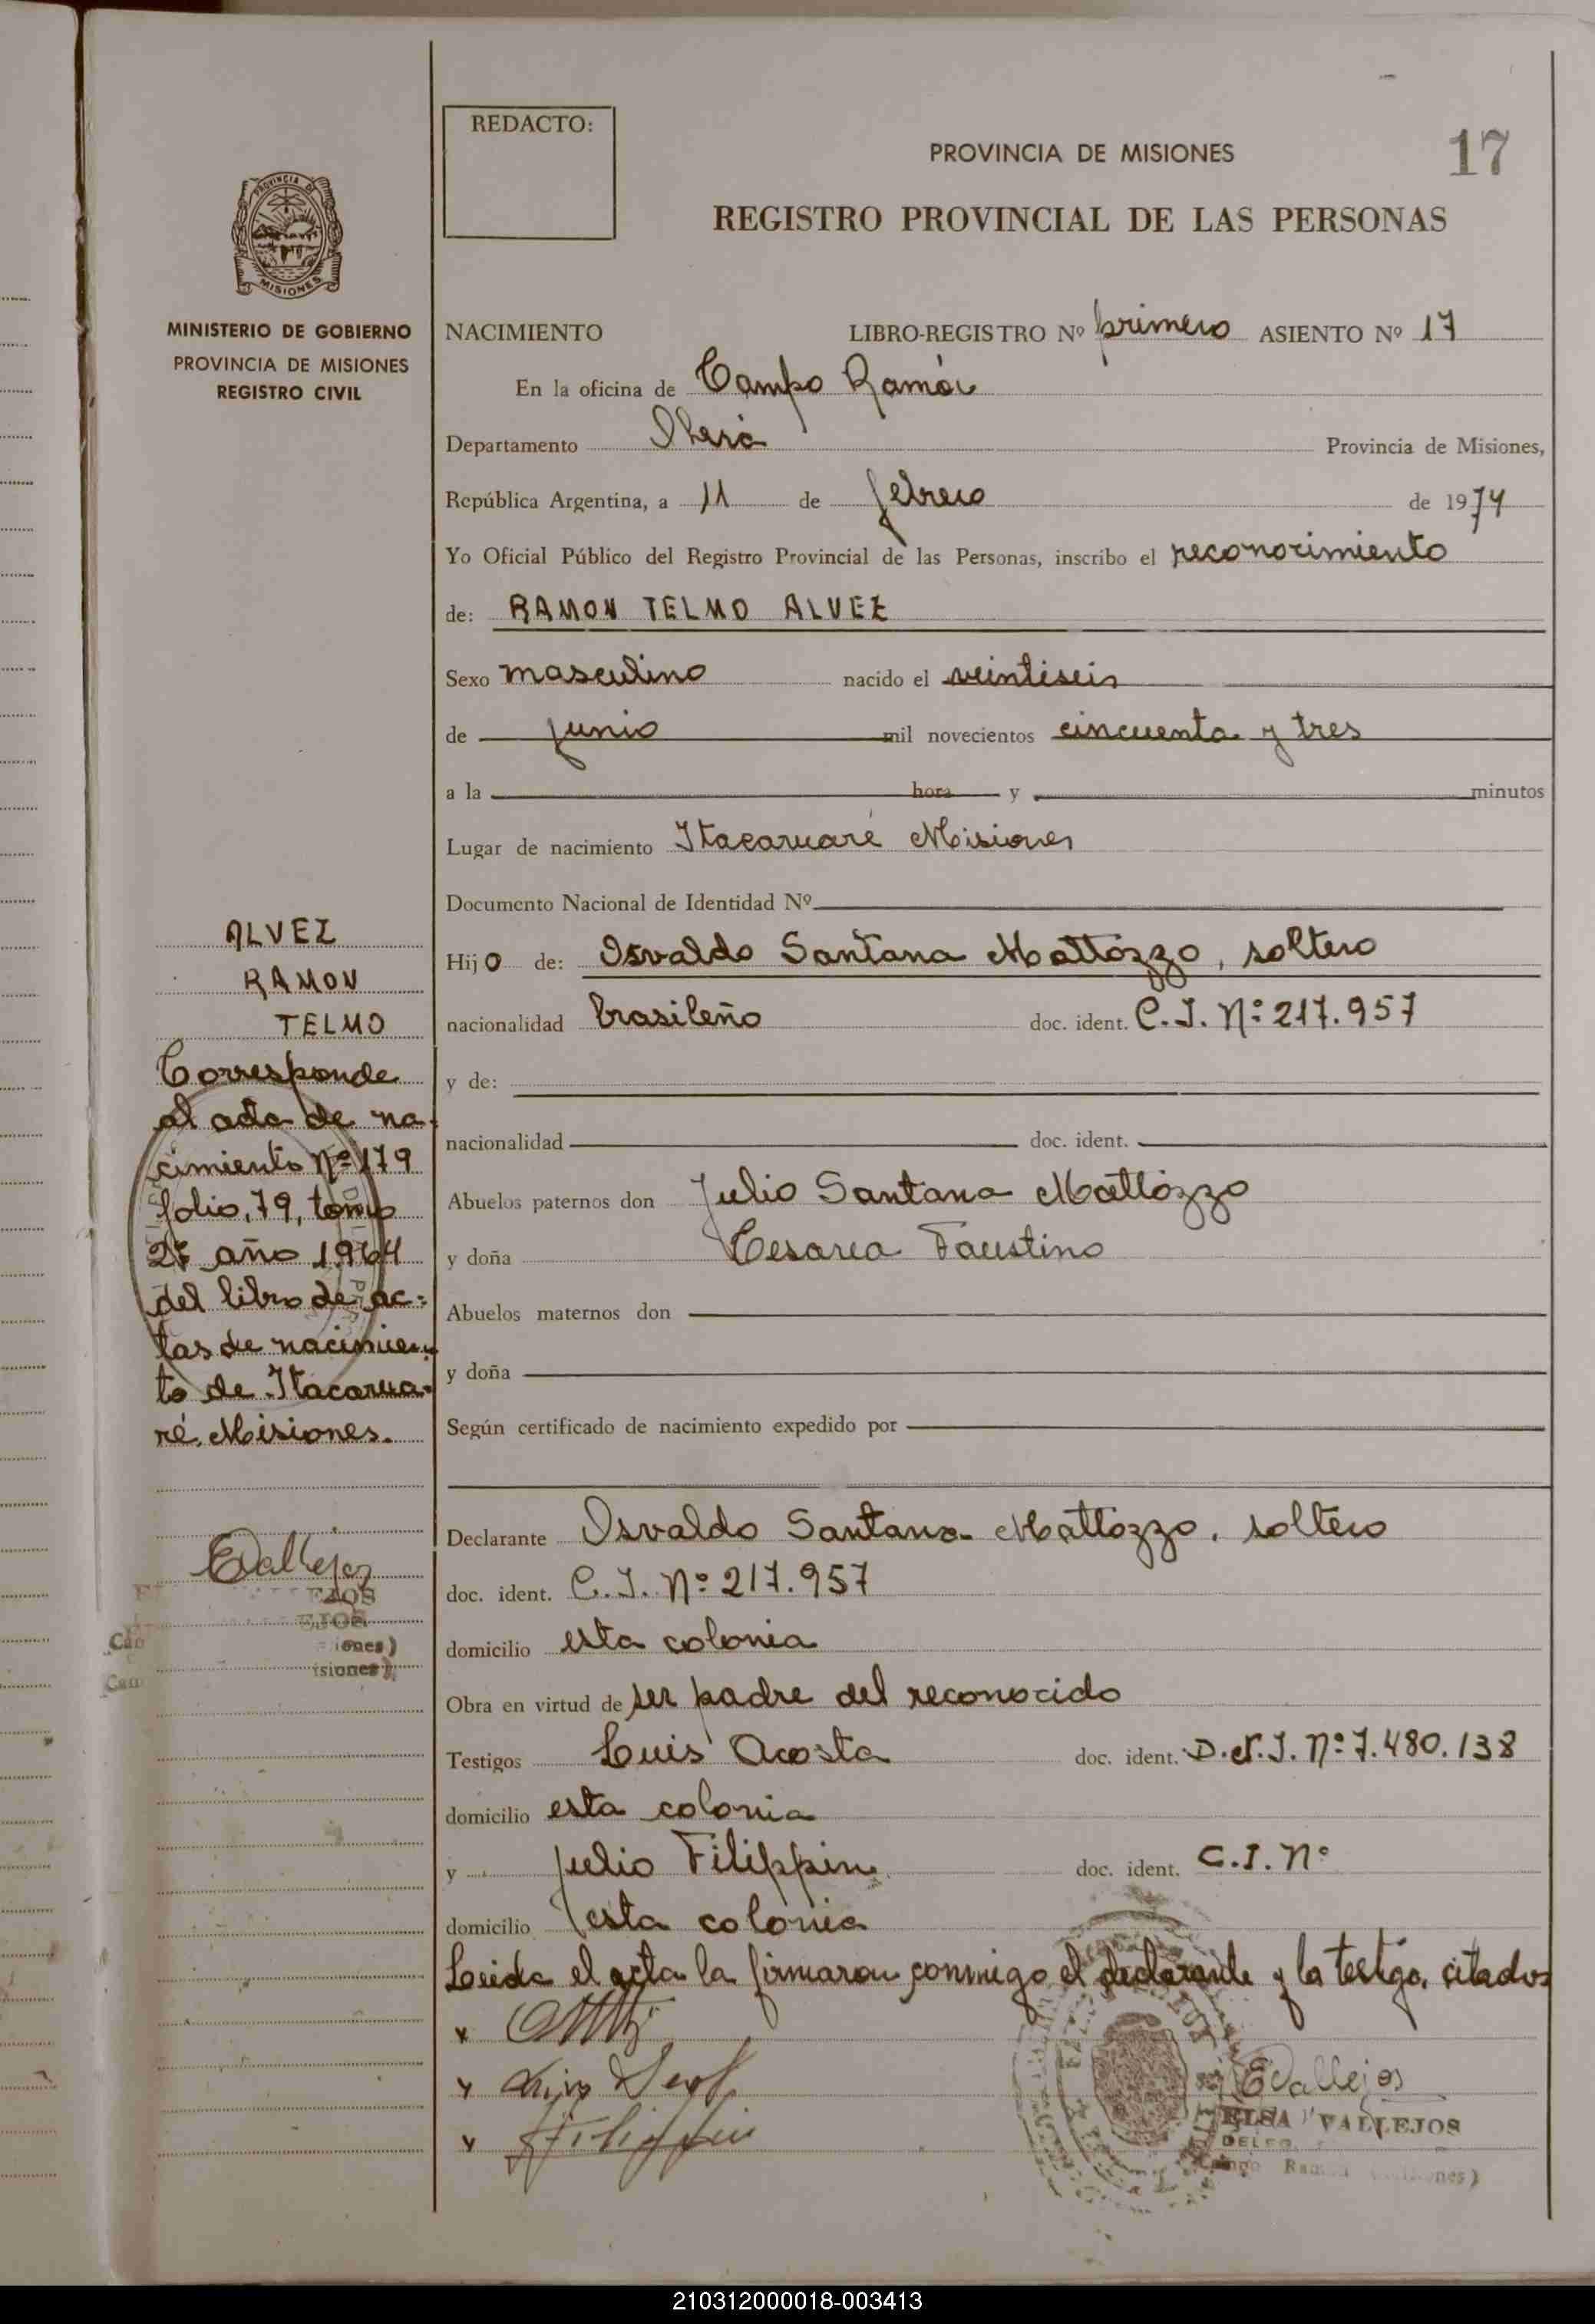 REDACTO:
PROVINCIA DE MISIONES
17
REGISTRO PROVINCIAL DE LAS PERSONAS
PROVINCIA DE
MISIONES
MINISTERIO DE GOBIERNO
PROVINCIA DE MISIONES
REGISTRO CIVIL
NACIMIENTO LIBRO-REGISTRO Nº primero ASIENTO Nº 17
En la oficina de Campo Ramón
Departamento Oberá Provincia de Misiones,
República Argentina, a 11 de febrero de 1974
Yo Oficial Público del Registro Provincial de las Personas, inscribo el reconocimiento
de: RAMON TELMO ALVEZ
Sexo masculino nacido el veintiseis
de junio mil novecientos cincuenta y tres
a la hora y minutos
Lugar de nacimiento Itacaruaré Misiones
Documento Nacional de Identidad Nº
Hijo de: Osvaldo Santana Mattozzo, soltero
nacionalidad brasileño doc. ident. C.I. Nº 217.957
y de:
nacionalidad doc. ident.
Abuelos paternos don Julio Santana Mattozzo
y doña Cesarea Faustino
Abuelos maternos don
y doña
Según certificado de nacimiento expedido por
Declarante Osvaldo Santana Mattozzo, soltero
doc. ident. C.I. Nº 217.957
domicilio esta colonia
Obra en virtud de ser padre del reconocido
Testigos Luis Acosta doc. ident. D.N.I. Nº 7.480.138
domicilio esta colonia
y Julio Filippin doc. ident. C.I. Nº
domicilio esta colonia
Leida el acta la firmaron conmigo el declarante y los testigos citados
EVallejos
ELSA VALLEJOS
ALVEZ
RAMON
TELMO
Corresponde
al acta de na-
cimiento Nº 179
folio, 79, tomo
año 1964
del libro de ac-
tas de nacimien-
to de Itacarua-
ré, Misiones.
EVallejos
210312000018-003413